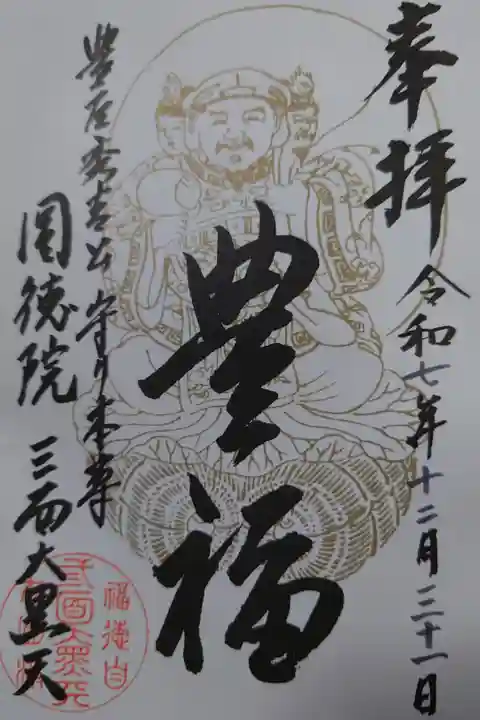 奉拝
令和七年十二月三十一日
豊福
豊臣秀吉公守り本尊
圓徳院 三面大黒天
福徳自
三面大黒天